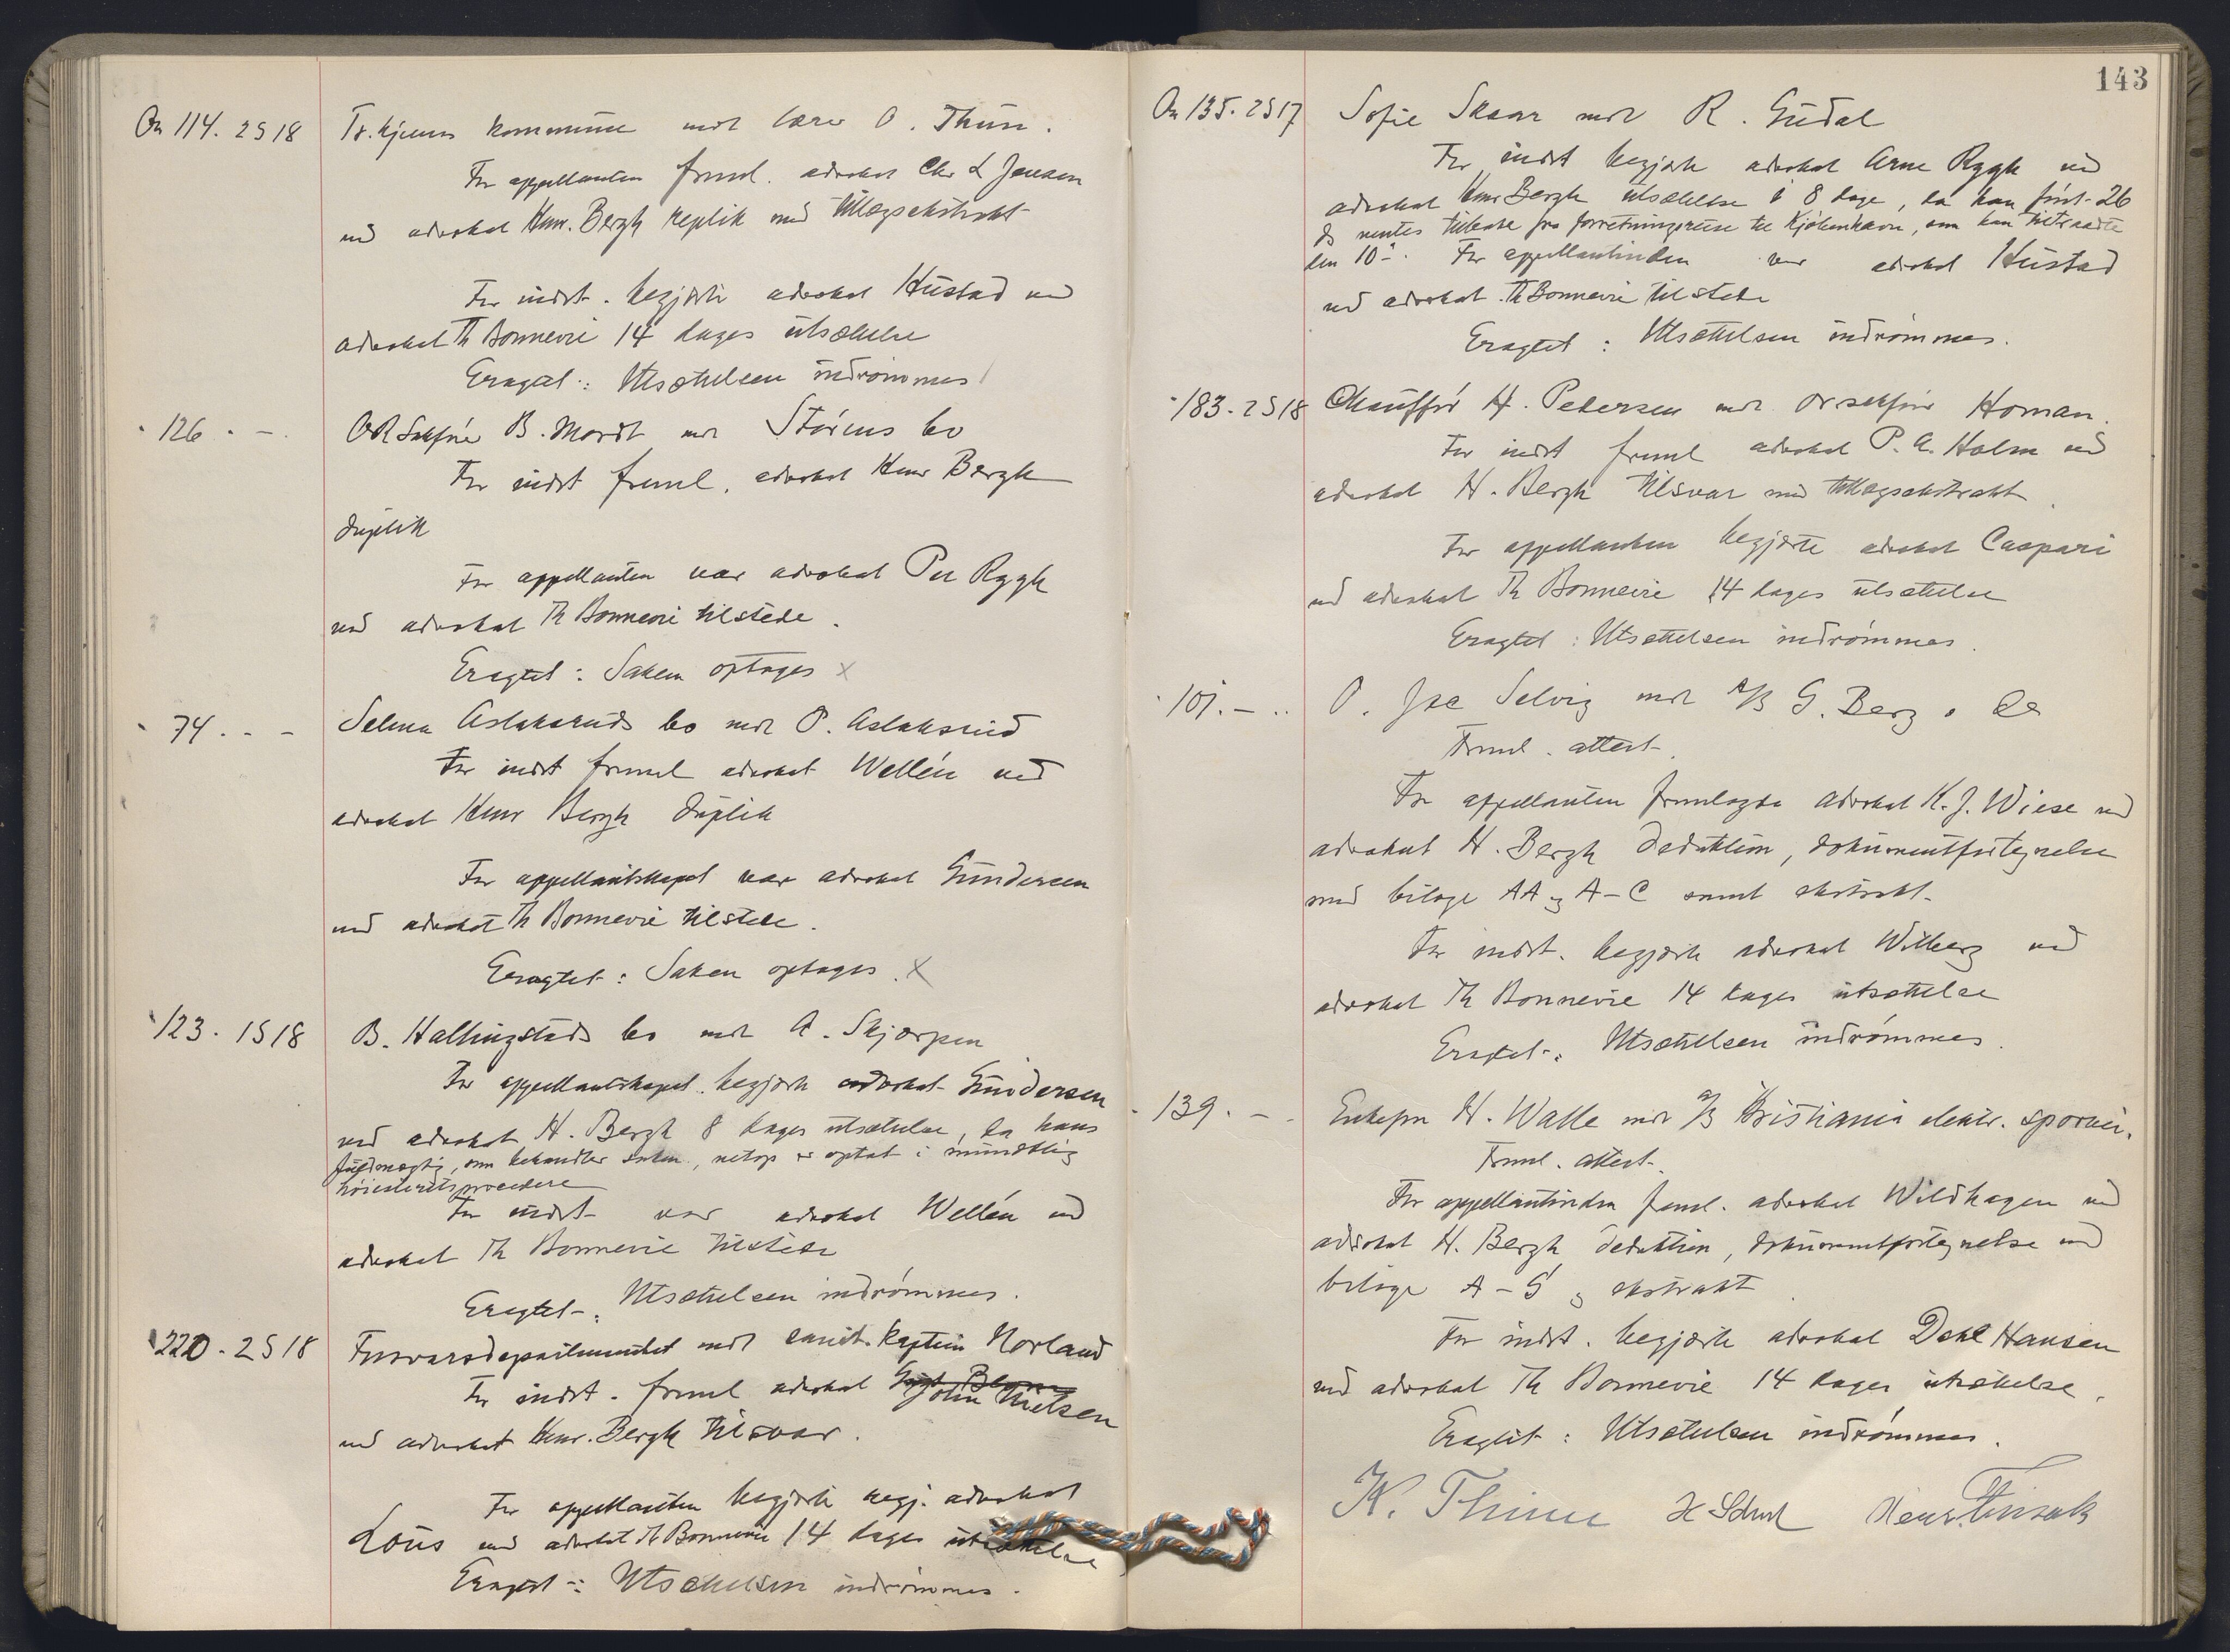 An 114. 2S18 Tr.hjems kommune mot lærer O. Thun.
For appellanten freml. advokat Chr L Jensen
ved advokat Henr. Bergh replik med tillægsekstrakt
For indst. begjærte advokat Hustad ved
advokat Th Bonnevie 14 dages utsættelse
Eragtet: Utsættelsen indrømmes
126. -. ORSakfører B. Mordt mot Störens bo
For indst freml. advokat Henr Bergh
duplik
For appellanten var advokat Per Rygh
ved advokat Th Bonnevie tilstede.
Eragtet: Saken optages x
74. - - Selma Aslaksruds bo mot P. Aslaksrud
For indst freml advokat Wellén ved
advokat Henr Bergh duplik
For appellantskapet var advokat Gundersen
ved advokat Th Bonnevie tilstede.
Eragtet: Saken optages. x
123. 1S18 B. Hallingstads bo mot A. Skjærpen
For appellantskapet begjærte advokat Gundersen
ved advokat H. Bergh 8 dages utsættelse, da hans
fuldmægtig, som behandler saken, netop er optat i mundtlig
høiesteretsprocedere
For indst var advokat Wellén ved
advokat Th Bonnevie tilstede
Eragtet: Utsættelsen indrømmes.
220. 2S18 Forsvarsdepartementet mot sanit. kaptein Norland
For indst. freml advokat John Nielsen
ved advokat Henr. Bergh tilsvar.
For appellanten begjærte regj. advokat
Lous ved advokat Th Bonnevie 14 dages utsættelse
Eragtet: Utsættelsen indrømmes.
143
An 135. 2S17 Sofie Skaar mot R. Gudal
For indst begjærte advokat Arne Rygh ved
advokat Henr Bergh utsættelse i 8 dage, da han först 26
ds ventes tilbake fra forretningsreise til Kjøbenhavn, som han tiltraadte
den 10'. For appellantinden var advokat Hustad
ved advokat Th Bonnevie tilstede
Eragtet: Utsættelsen indrømmes.
183. 2S18 Chauffør H. Petersen mot orsakfører Homan.
For indst freml advokat P. A. Holm ved
advokat H. Bergh tilsvar med tillægsekstrakt.
For appellanten begjærte advokat Caspari
ved advokat Th Bonnevie 14 dages utsættelse
Eragtet: Utsættelsen indrømmes.
101. - .. O. Jac Selvig mot A/S G. Berg & Co
Freml. attest.
For appellanten fremlagde advokat K. J. Wiese ved
advokat H. Bergh deduktion, dokumentfortegnelse
med bilage AA og A-C samt ekstrakt.
For indst. begjærte advokat Wilberg ved
advokat Th Bonnevie 14 dages utsættelse
Eragtet: Utsættelsen indrømmes.
139. - - Enkefru H. Walle mot A/S Kristiania elektr. sporvei.
Freml. attest.
For appellantinden freml. advokat Wildhagen ved
advokat H. Bergh deduktion, dokumentfortegnelse med
bilage A-G og ekstrakt.
For indst. begjærte advokat Dahl Hansen
ved advokat Th Bonnevie 14 dages utsættelse.
Eragtet: Utsættelsen indrømmes.
K. Thinn